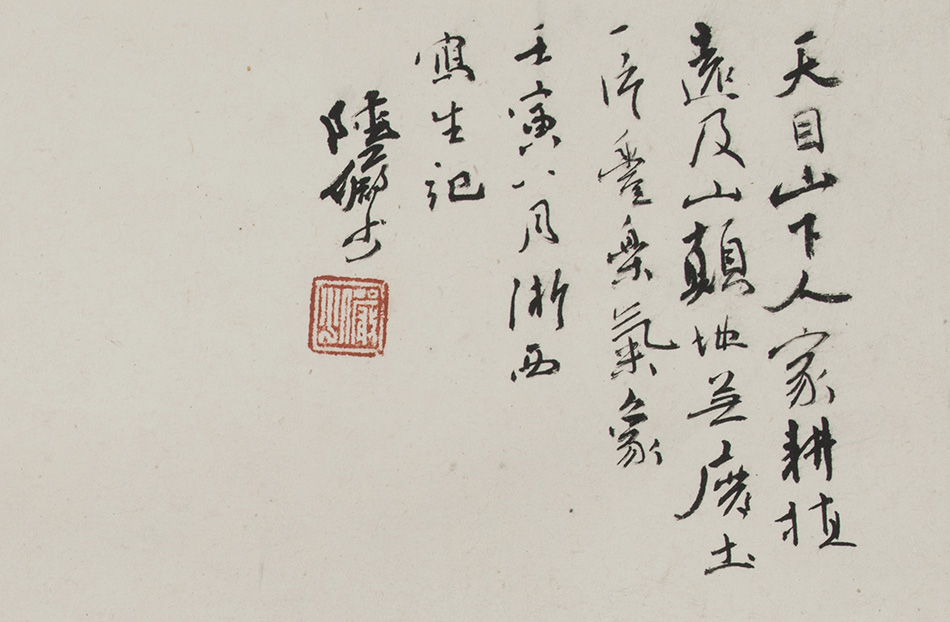 天目山下人家耕植
遠及山顛地無廢土
一片豐樂氣象
壬寅八月浙西
寫生記
陸儼少
儼少